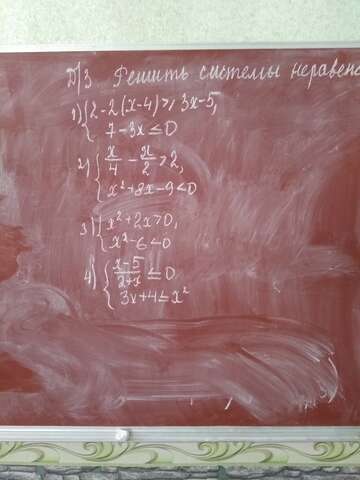 Д/З Решить системы неравенс
1) { 2-2(x-4) ≥ 3x-5,
7-3x ≤ 0
2) { x/4 - x/2 > 2,
x²+8x-9<0
3) { x²+2x>0,
x²-6<0
4) { (x-5)/(2+x) ≤ 0
3x+4≤x²